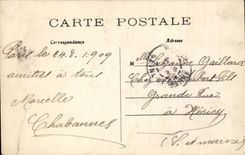 CARTE POSTALE
Correspondance
Adresse
Paris le 24.8.1909
amitiés à tous
Marcelle
Chabannes
M Gaillard
Chez Albert
Grande Rue
à Héricy
S. et marne